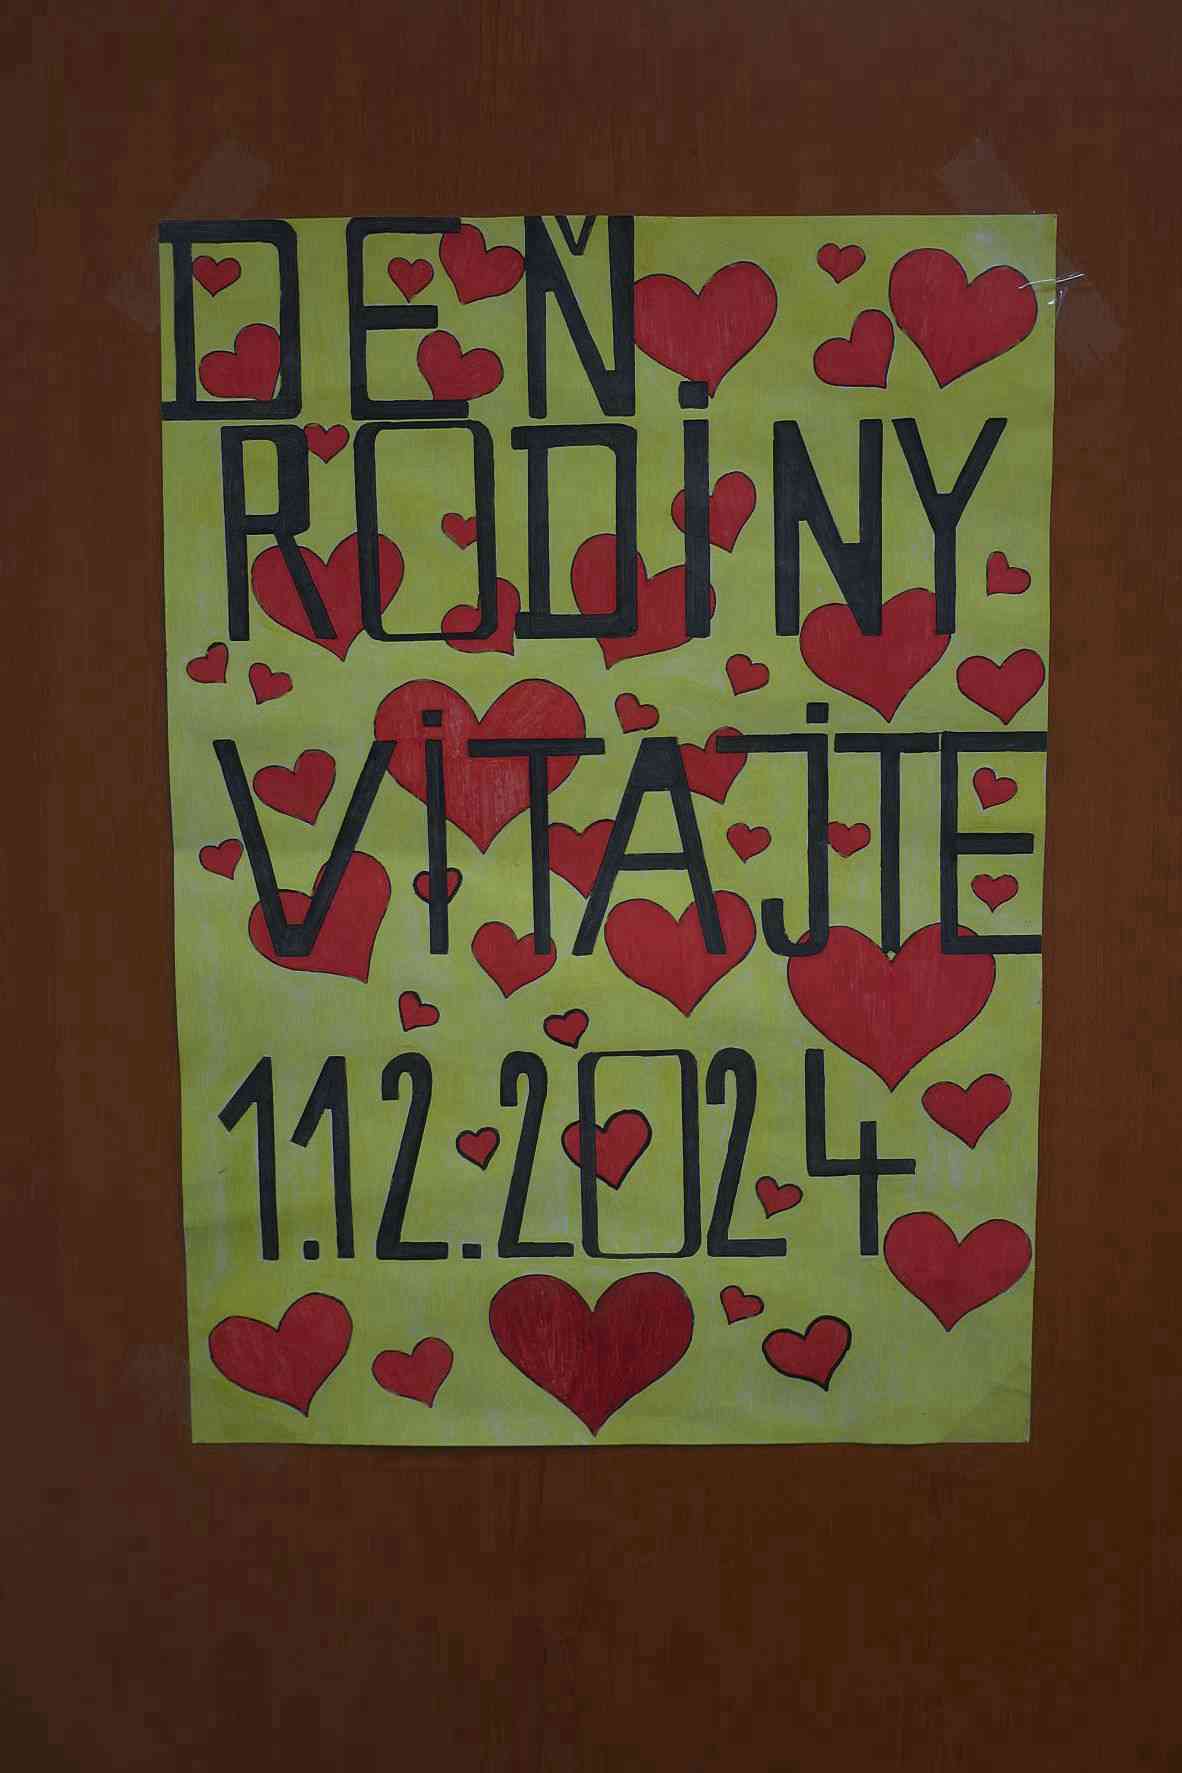 DEŇ
RODINY
VITAJTE
11.2.2024